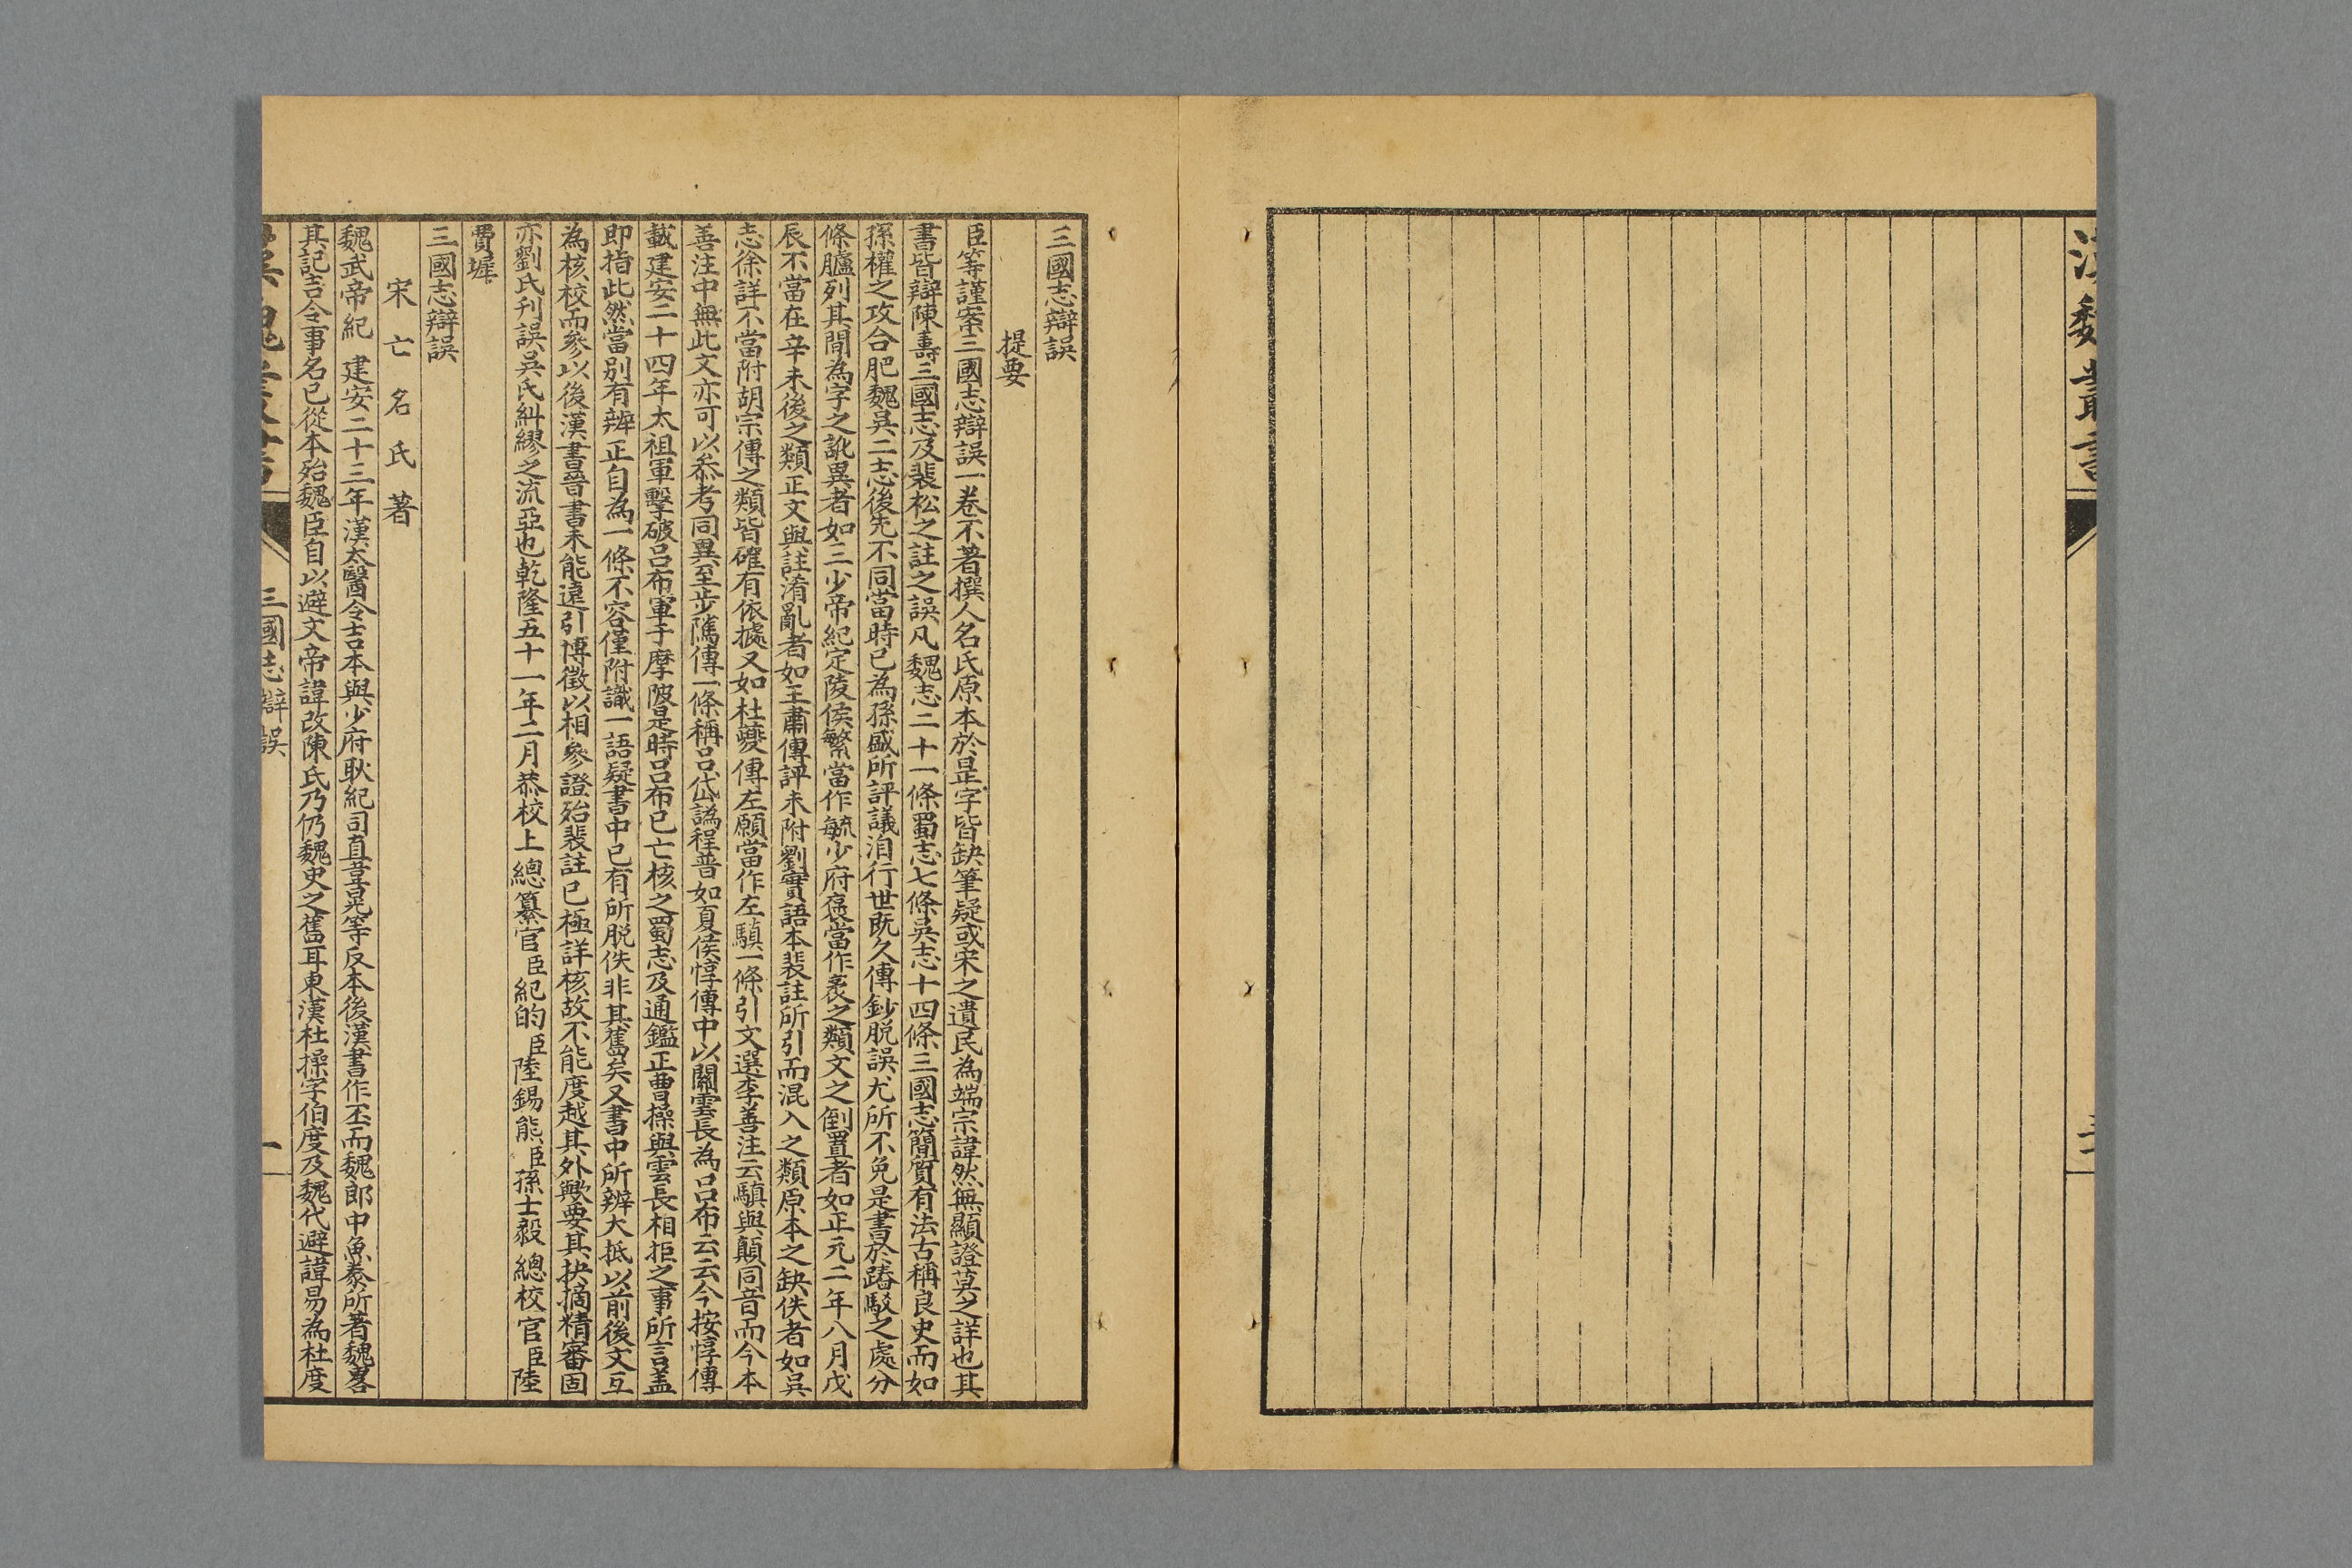 漢魏叢書
三國志辯誤
提要
臣等謹案三國志辯誤一卷不著撰人名氏原本於昰字皆缺筆疑或宋之遺民為端宗諱然無顯證莫之詳也其
書皆辯陳壽三國志及裴松之註之誤凡魏志二十一條蜀志七條吳志十四條三國志簡質有法古稱良史而如
孫權之攻合肥魏吳二志後先不同當時已為孫盛所評議洎行世既久傳鈔脱誤尤所不免是書於踳駮之處分
條臚列其間為字之訛異者如三少帝紀定陵侯繁當作毓少府褒當作袤之類文之倒置者如正元二年八月戊
辰不當在辛未後之類正文與註淆亂者如王肅傳評末附劉寔語本裴註所引而混入之類原本之缺佚者如吳
志徐詳不當附胡宗傳之類皆確有依據又如杜夔傳左願當作左騏一條引文選李善注云騏與顛同音而今本
善注中無此文亦可以叅考同異至步隲傳一條稱呂岱譌程普如夏侯惇傳中以關雲長為呂布云云今按惇傳
載建安二十四年太祖軍擊破呂布軍于摩陂是時呂布已亡核之蜀志及通鑑正曹操與雲長相拒之事所言盖
即指此然當別有辨正自為一條不容僅附識一語疑書中已有所脱佚非其舊矣又書中所辨大抵以前後文互
為核校而參以後漢書晉書未能遠引博徵以相參證殆裴註已極詳核故不能度越其外歟要其抉摘精審固
亦劉氏刋誤吳氏糾繆之流亞也乾隆五十一年二月恭校上 總纂官臣紀昀臣陸錫熊臣孫士毅 總校官臣陸
費墀
三國志辯誤
宋亡名氏著
魏武帝紀 建安二十三年漢太醫令吉本與少府耿紀司直韋晃等反本後漢書作丕而魏郎中魚豢所著魏畧
其記吉令事名已從本殆魏臣自以避文帝諱改陳氏乃仍魏史之舊耳東漢杜操字伯度及魏代避諱易為杜度
漢魏叢書
三國志辯誤
一